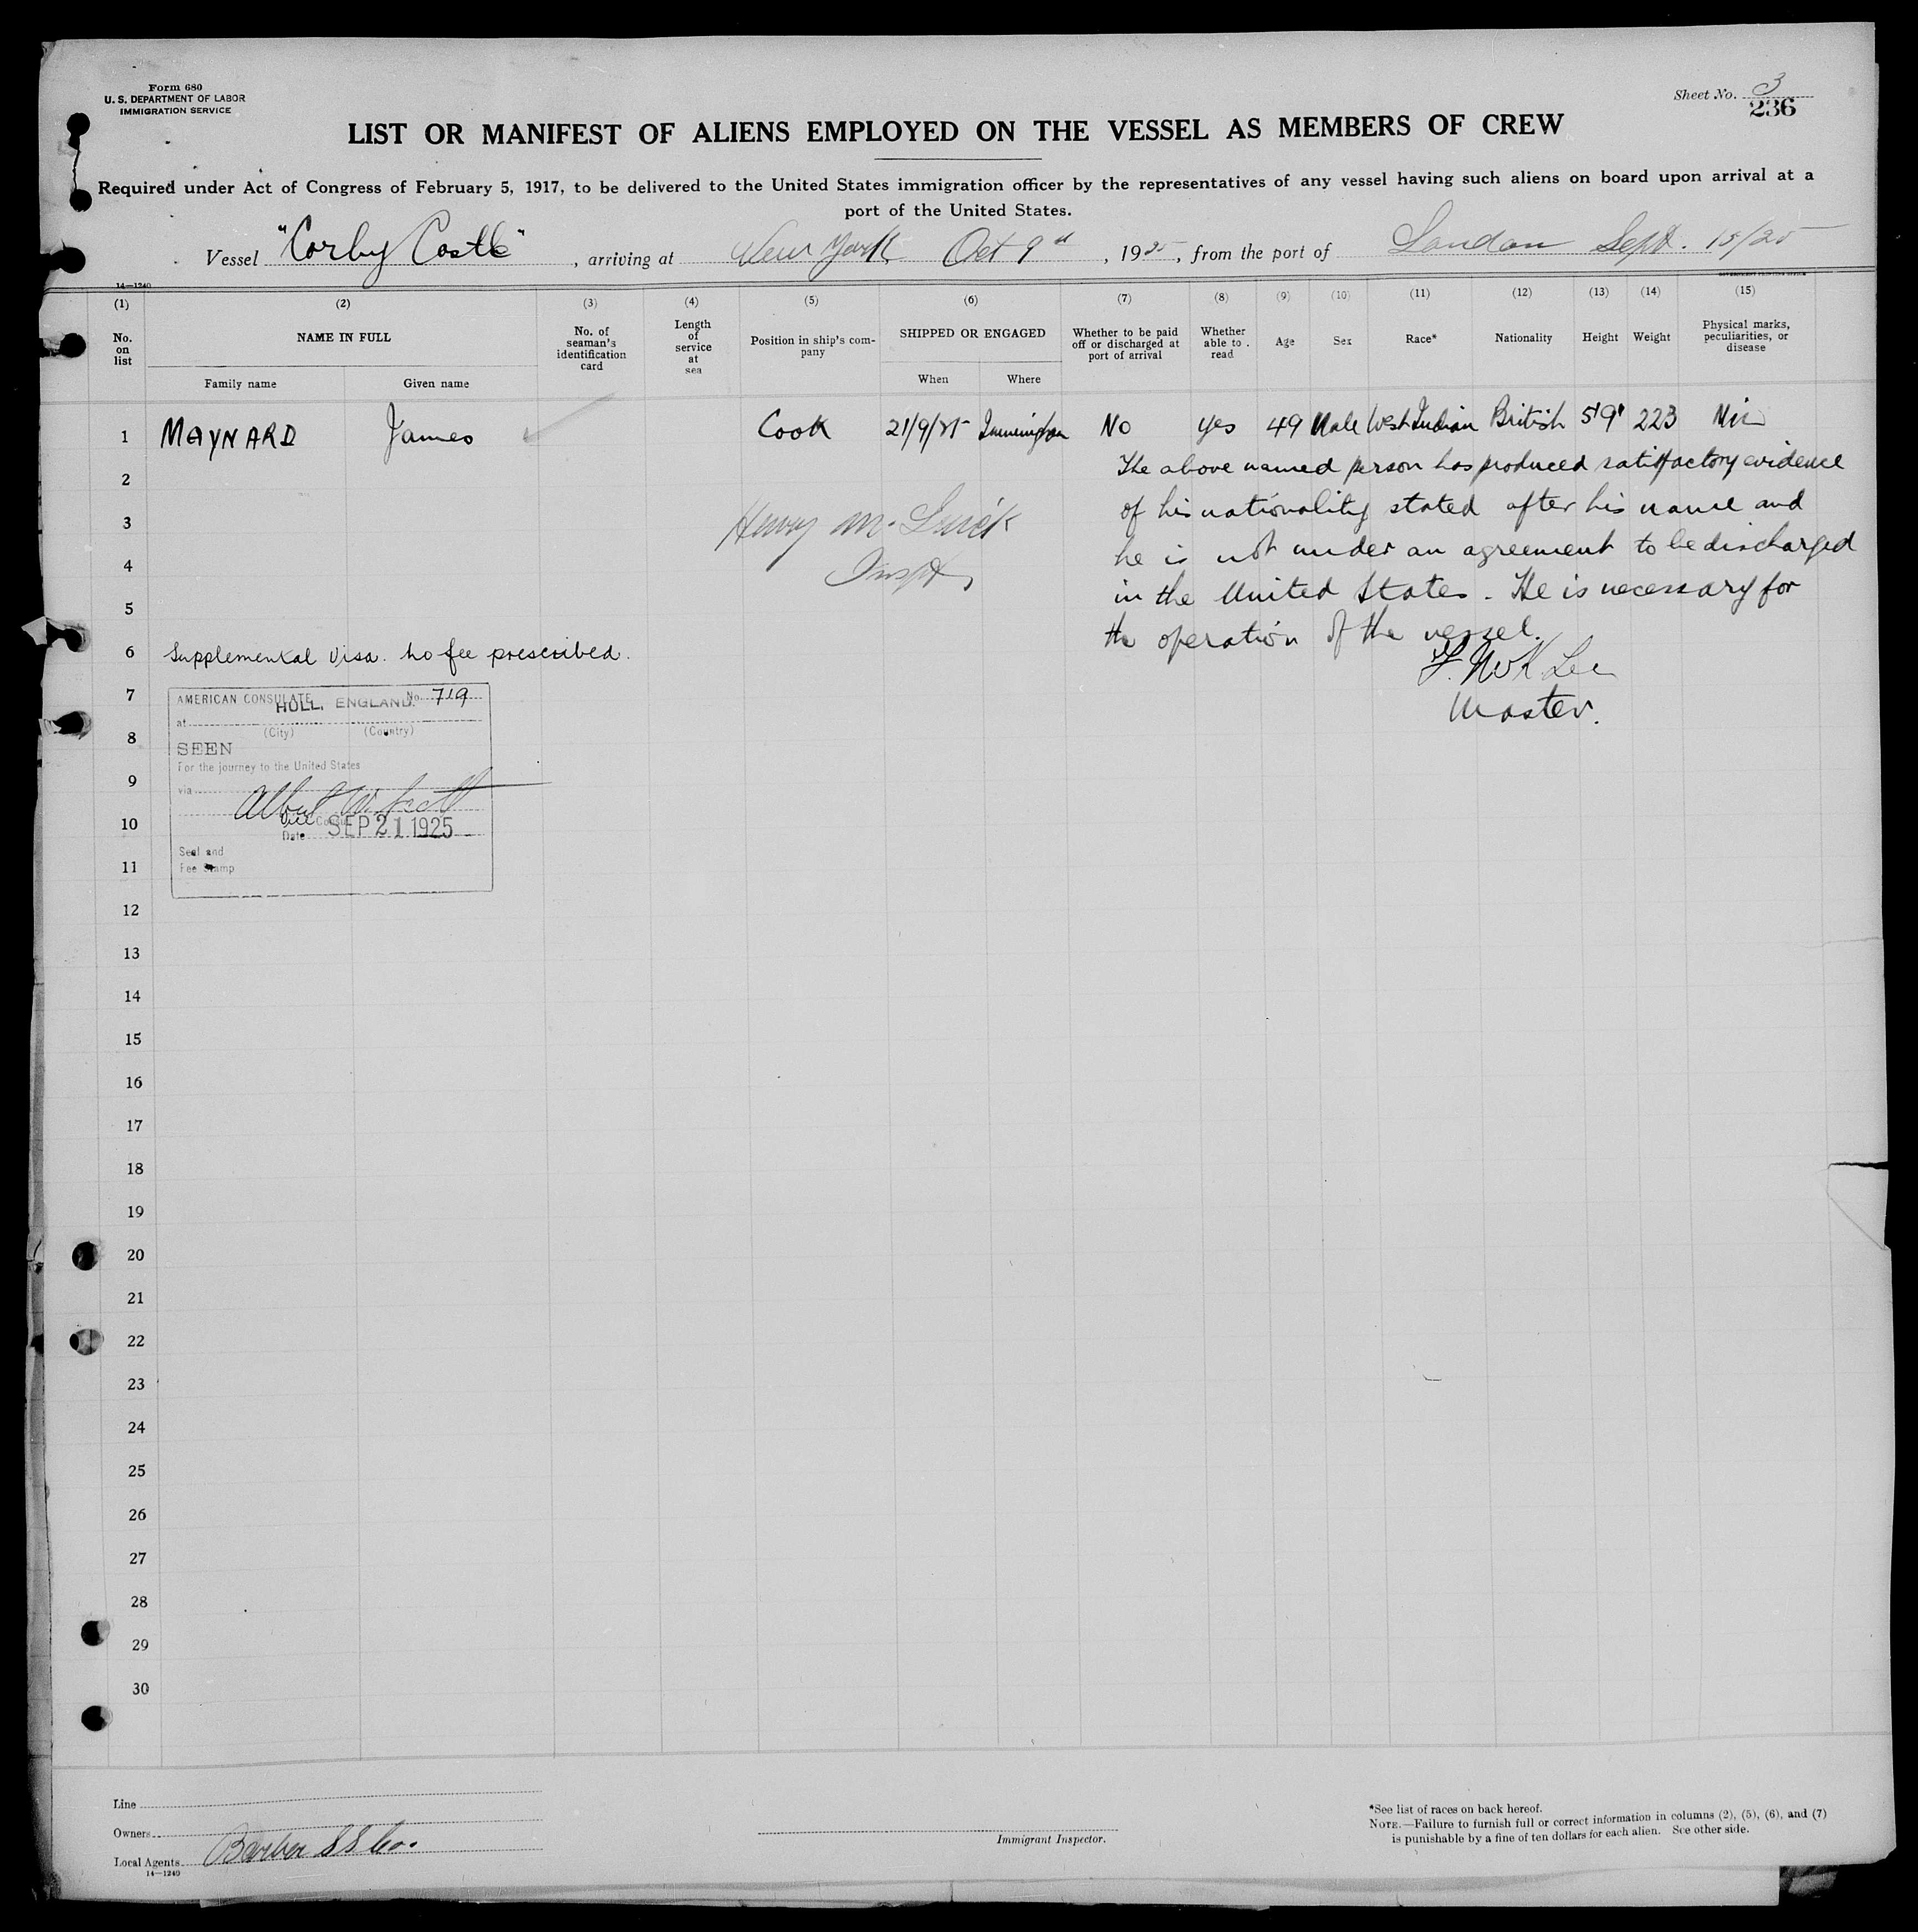 Form 680
U. S. DEPARTMENT OF LABOR
IMMIGRATION SERVICE
Sheet No. 3
236
LIST OR MANIFEST OF ALIENS EMPLOYED ON THE VESSEL AS MEMBERS OF CREW
Required under Act of Congress of February 5, 1917, to be delivered to the United States immigration officer by the representatives of any vessel having such aliens on board upon arrival at a
port of the United States.
Vessel "Corby Castle", arriving at New York Oct 9th, 1925, from the port of London Sept. 15/25
14—1240
GOVERNMENT PRINTING OFFICE
(1) (2) (3) (4) (5) (6) (7) (8) (9) (10) (11) (12) (13) (14) (15)
No. on list
NAME IN FULL
Family name Given name
No. of seaman's identification card
Length of service at sea
Position in ship's company
SHIPPED OR ENGAGED
When Where
Whether to be paid off or discharged at port of arrival
Whether able to read
Age
Sex
Race*
Nationality
Height
Weight
Physical marks, peculiarities, or disease
1 MAYNARD James Cook 21/9/25 Immingham No Yes 49 Male West Indian British 5'9" 223 Nil
The above named person has produced satisfactory evidence
2
of his nationality stated after his name and
3 Henry M.
he is not under an agreement to be discharged
4 Inspt,
in the United States. He is necessary for
5
the operation of the vessel.
6 Supplemental Visa. No fee prescribed.
Lee
Master.
7
AMERICAN CONSULATE No. 719
at HULL, ENGLAND.
(City) (Country)
8
SEEN
For the journey to the United States
9
via
Albert W. Scott
Vice Consul
10
Date SEP 21 1925
Seal and
Fee Stamp
11
12
13
14
15
16
17
18
19
20
21
22
23
24
25
26
27
28
29
30
Line
Owners
Local Agents Barber SS Co.
14—1240
Immigrant Inspector.
*See list of races on back hereof.
NOTE.—Failure to furnish full or correct information in columns (2), (5), (6), and (7)
is punishable by a fine of ten dollars for each alien. See other side.